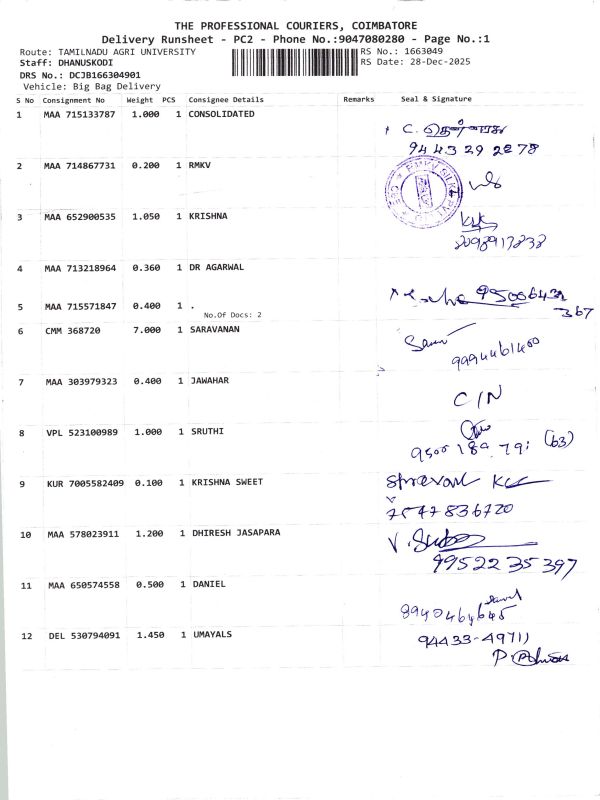 THE PROFESSIONAL COURIERS, COIMBATORE
Delivery Runsheet - PC2 - Phone No.:9047080280 - Page No.:1
Route: TAMILNADU AGRI UNIVERSITY
RS No.: 1663049
Staff: DHANUSKODI
RS Date: 28-Dec-2025
DRS No.: DCJB166304901
Vehicle: Big Bag Delivery
S No Consignment No Weight PCS Consignee Details Remarks Seal & Signature
1 MAA 715133787 1.000 1 CONSOLIDATED
9443292278
2 MAA 714867731 0.200 1 RMKV
RMKV SILK
3 MAA 652900535 1.050 1 KRISHNA
4 MAA 713218964 0.360 1 DR AGARWAL
5 MAA 715571847 0.400 1 .
No.Of Docs: 2
367
6 CMM 368720 7.000 1 SARAVANAN
9994461400
7 MAA 303979323 0.400 1 JAWAHAR
C/N
8 VPL 523100989 1.000 1 SRUTHI
(63)
9 KUR 7005582409 0.100 1 KRISHNA SWEET
7547836720
10 MAA 578023911 1.200 1 DHIRESH JASAPARA
9952235397
11 MAA 650574558 0.500 1 DANIEL
8940464645
12 DEL 530794091 1.450 1 UMAYALS
94433-49711